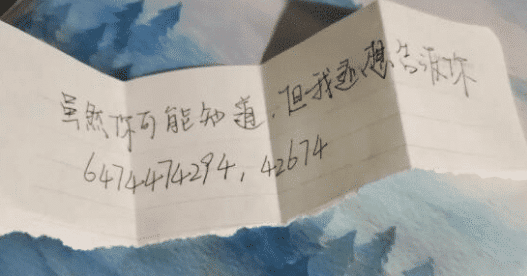 虽然你可能知道,但我还想告诉你
6474474294,42674